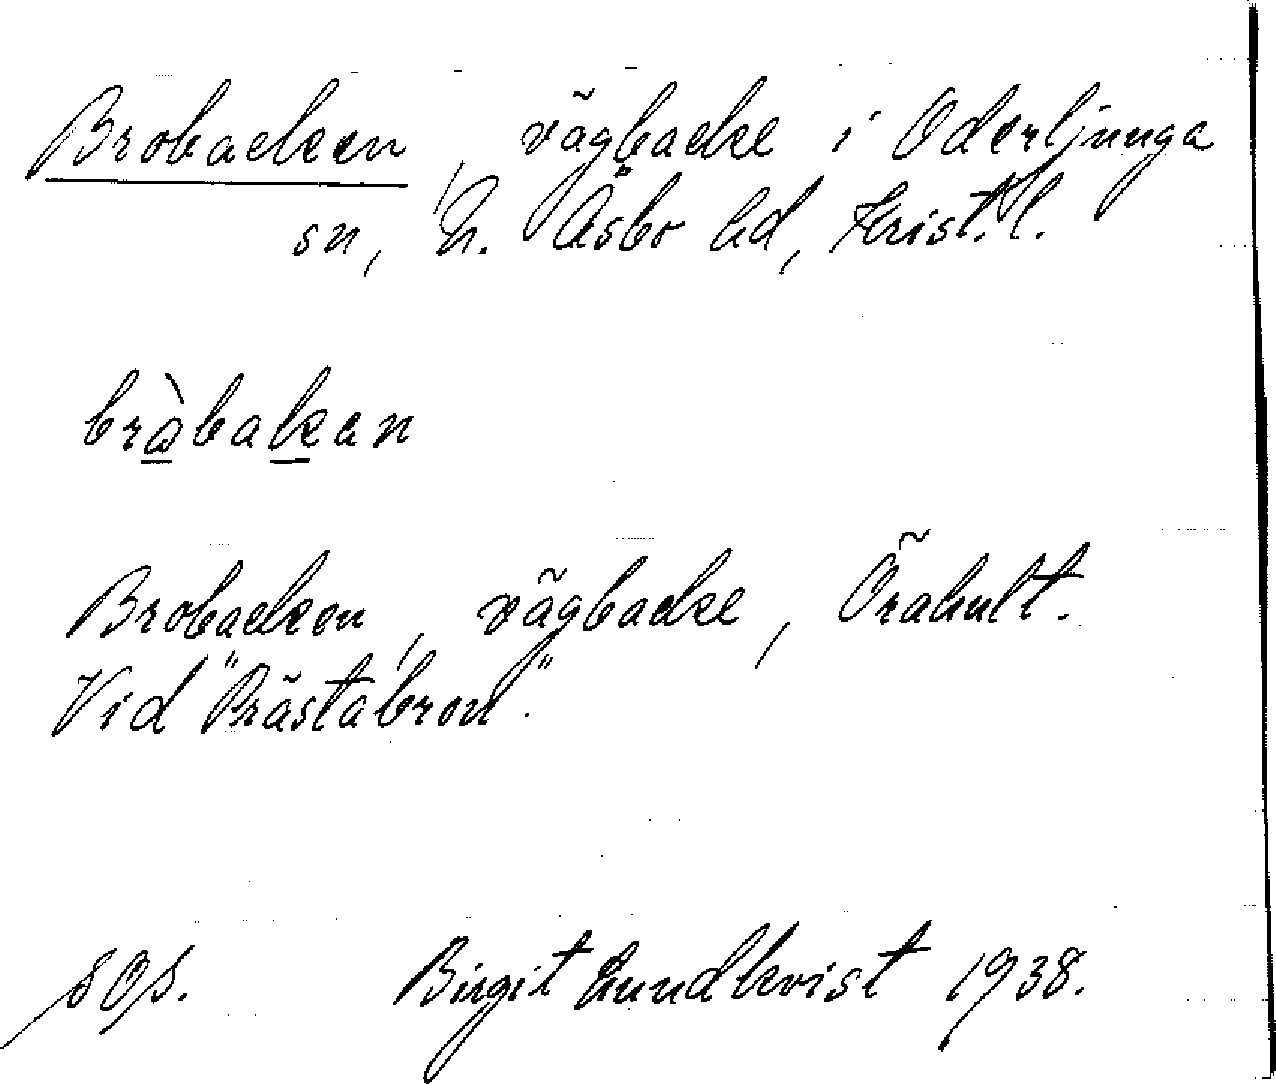 Brobacken, vägbacke i Oderljunga
sn, N. Åsbo hd, Krist. l.
bråbakan
Brobacken, vägbacke, Örahult.
Vid "Prästabron".
SOS. Birgit Lundkvist 1938.